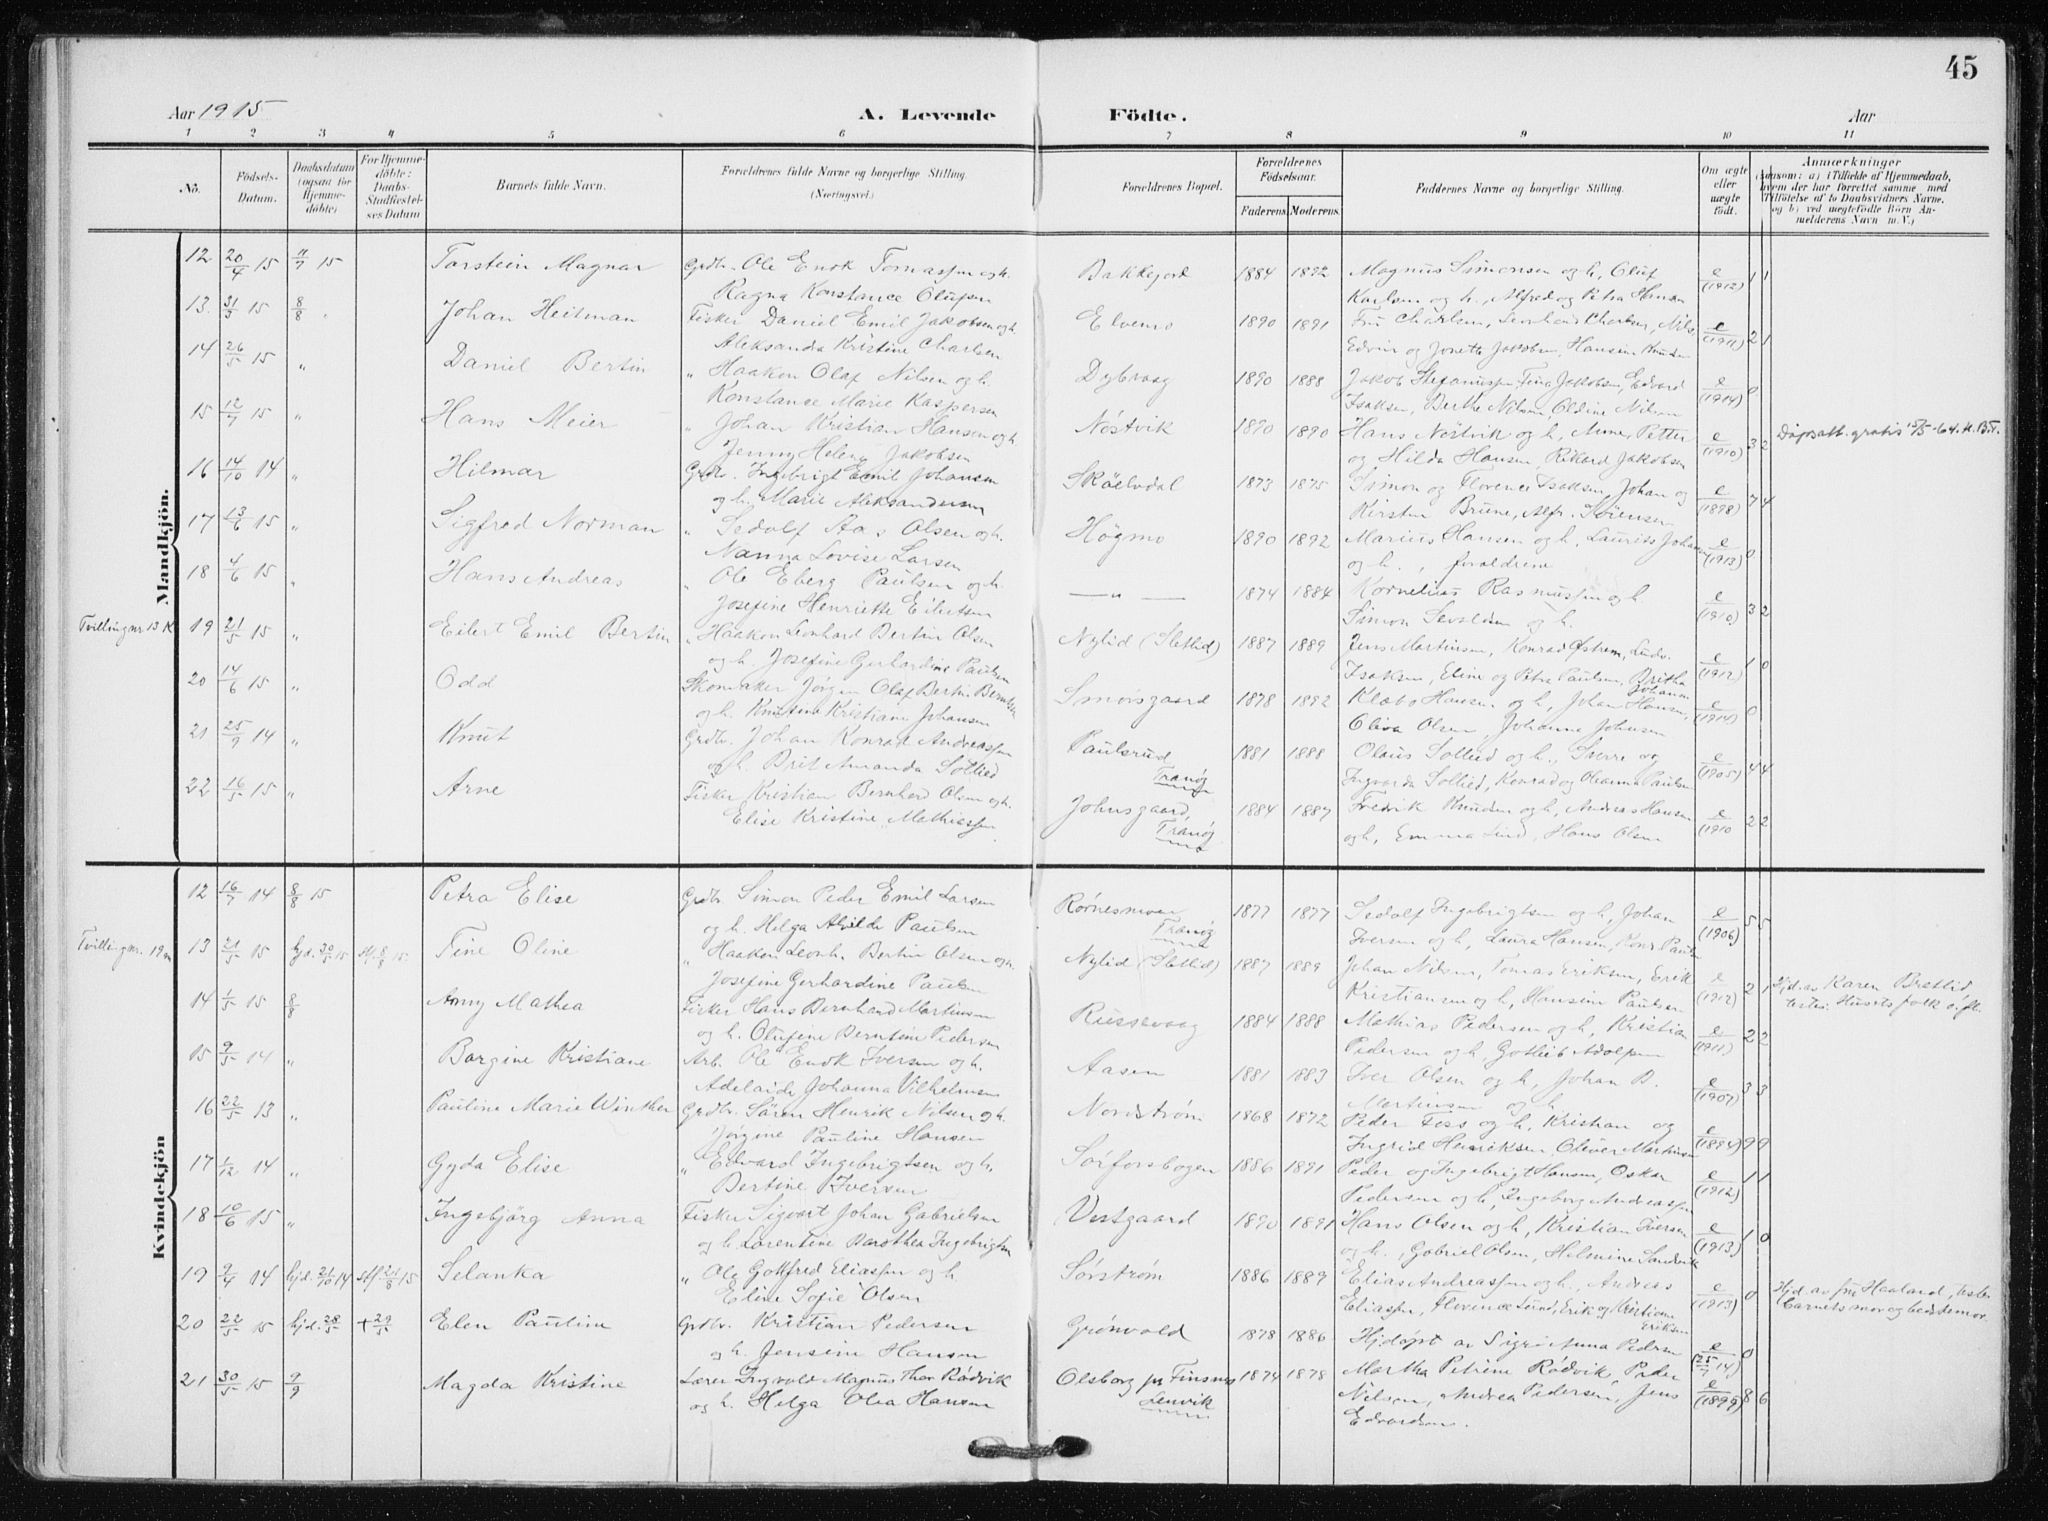 45
Aar 1915 A. Levende Födte. Aar
1 2 3 4 5 6 7 8 9 10 11
No. Födsels-Datum. Daabsdatum (ogsaa for Hjemmedöbte) For Hjemmedöbte: Daabs-Stadfæstelses Datum Barnets fulde Navn. Forældrenes fulde Navne og borgerlige Stilling. (Næringsvei.) Forældrenes Bopæl. Forældrenes Födselsaar. Faderens. Moderens. Faddernes Navne og borgerlige Stilling. Om ægte eller uægte födt. Anmærkninger
Mandkjön.
12 20/4 15 11/7 15 Torstein Magnar Grdbr. Ole Enok Tomassen og h. Bakkejord 1884 1892 Magnus Simonsen og h, Oluf e/(1912) 1 1
Ragna Konstance Olufsen Karlsen og h., Alfred og Petra Hansen
13. 31/3 15 8/8 " Johan Heitman Fisker Daniel Emil Jakobsen og h. Elvemo 1890 1891 Fru Charlsen, Leonhard Charlsen, Nils e/(1911) 2 1
Aleksanda Kristine Charlsen Edvin og Jonette Jakobsen, Hansine Knudsen
14 26/5 15 " Daniel Bertin " Haakon Olaf Nilsen og h. Dybvaag 1890 1888 Jakob Stefanussen, Tina Jakobsen, Edvard e/(1914) 0
Konstanse Marie Kaspersen Isaksen, Berthe Nilsen, Oldine Nilsen
15 12/7 15 " Hans Meier " Johan Kristian Hansen og h. Nöstvik 1890 1890 Hans Nöstvik og h, Arne, Petter e/(1910) 3 2 Dåpsatt. gratis
Jenny Helene Jakobsen og Hilda Hansen, Rikard Jakobsen
16 14/10 14 " Hilmar Grdbr. Ingebrigt Emil Johansen Sköelvdal 1873 1875 Simon og Florence Isaksen, Johan og e/(1898) 7 4
og h. Marie Aleksandersen Kirsten Brune, Alfr. Sörensen
17 13/6 15 " Sigfred Norman " Sedolf Aas Olsen og h. Högmo 1890 1892 Marius Hansen og h, Laurits Johansen e/(1913) 0
Nanna Lovise Larsen og h., forældrene
18 4/6 15 " Hans Andreas " Ole Eberg Paulsen og h. — " — 1874 1884 Kornelius Rasmussen og h e/(1910) 3 2
Josefine Henriette Eilertsen Simon Sevaldsen og h.
Tvilling nr 13 K 19 21/5 15 " Eilert Emil Bertin " Haakon Leonhard Bertin Olsen Nylid (Sletlid) 1887 1889 Jens Martinsen, Konrad Östrem, Ludv. e/(1912) 1 0
og h. Josefine Gerhardine Paulsen Isaksen, Eline og Petra Paulsen, Britha Johansen
20 14/6 15 " Odd Skomaker Jörgen Olaf Bertin Berntsen Smörsgaard 1878 1892 Klæbo Hansen og h, Johan Hansen, e/(1914) 0
og h. Kristiane Johansen Oliva Olsen, Johanne Johnsen
21 25/9 14 " Knut Grdbr. Johan Konrad Andreassen Paulsrud 1881 1888 Olaus Sollied og h., Sverre og e/(1905) 4 4
og h. Brit Amanda Sollied Tranöy Ingvarda Sollied, Konrad og Oleanna Paulsen
22 16/5 15 " Arne Fisker Kristian Bernhard Olsen og h. Johnsgaard, 1884 1887 Fredrik Knudsen og h, Andreas Hansen e/(1910 2 2
Elise Kristine Mathiassen Tranöy og h, Emma Lind, Hans Olsen
Kvindekjön
12 16/7 14 8/8 15 Petra Elise Grdbr. Simon Peder Emil Larsen Rörnesmoen 1877 1877 Sedolf Ingebrigtsen og h, Johan e/(1906) 5 5
og h. Helga Alvilde Paulsen Tranöy Iversen og h, Laura Hansen, Konr. Paulsen
Tvilling nr. 19 m 13 21/5 15 hjd. 30/5 15 stf. 8/8 15. Tine Oline " Haakon Leonh. Bertin Olsen og h. Nylid (Sletlid) 1887 1889 Johan Nilsen, Tomas Eriksen, Erik e/(1912) 2 1 Hjd. av Karen Brattlid,
Josefine Gerhardine Paulsen Kristiansen og h, Hansine Paulsen
14 1/5 15 8/8 Anny Mathea Fisker Hans Bernhard Martinsen Russevaag 1884 1888 Mathias Pedersen og h, Kristian e/(1911) 2 2
og h. Olufine Berntine Pedersen Pedersen og h, Gotlieb Adolfsen
15 9/5 14 " Borgine Kristiane Arb. Ole Enok Iversen og h. Aasen 1881 1883 Iver Olsen og h, Johan B. e/(1907) 3 3
Adelaide Johanna Vilhelmsen Martinsen og h
16 22/5 13 " Pauline Marie Winther Grdbr. Sören Henrik Nilsen og h. Nordström 1868 1872 Peder Foss og h, Kristian og e/(1894) 9 9
Jörgine Pauline Hansen Ingrid Henriksen, Oliver Martinsen
17 1/12 14 " Gyda Elise " Edvard Ingebrigtsen og h. Sörforsbogen 1886 1891 Peder og Ingebrigt Hansen, Oskar e/(1912) 1 1
Bertine Iversen Pedersen og h, Ingeborg Andreassen
18 10/6 15 " Ingebjörg Anna Fisker Sigvart Johan Gabrielsen Vestgaard 1890 1891 Hans Olsen og h, Kristian Iversen e/(1913) 1 0
og h. Lorentine Dorothea Ingebrigtsen og h., Gabriel Olsen, Helmine Sandvik
19 9/4 14 hjd. 21/10 14 stf. 15 Selanka " Ole Gottfred Eliassen og h Sörström 1886 1889 Elias Andreassen og h., Andreas e/(1913) 0 Hjd. av fru Haaland, Test.
Eline Sofie Olsen Eliassen, Florence Lund, Erik og Kristiane Eriksen barnets mor og bedstemor.
20 22/5 15 hjd. 28/5 + 29/5 Elen Pauline Grdbr. Kristian Pedersen Grönvold 1878 1886 Hjdöpt av Sigrid Anna Pedersen e/(25/7 14) 0
og h. Jensine Hansen
21 30/5 15 9/9 Magda Kristine Lærer Ingvald Magnus Thor Rödvik Olsborg pr Finsnes 1874 1878 Martha Petrine Rödvik, Peder e/(1899) 8 6
og h. Helga Olea Hansen Lenvik Nilsen, Andrea Pedersen, Jens
Edvardsen.